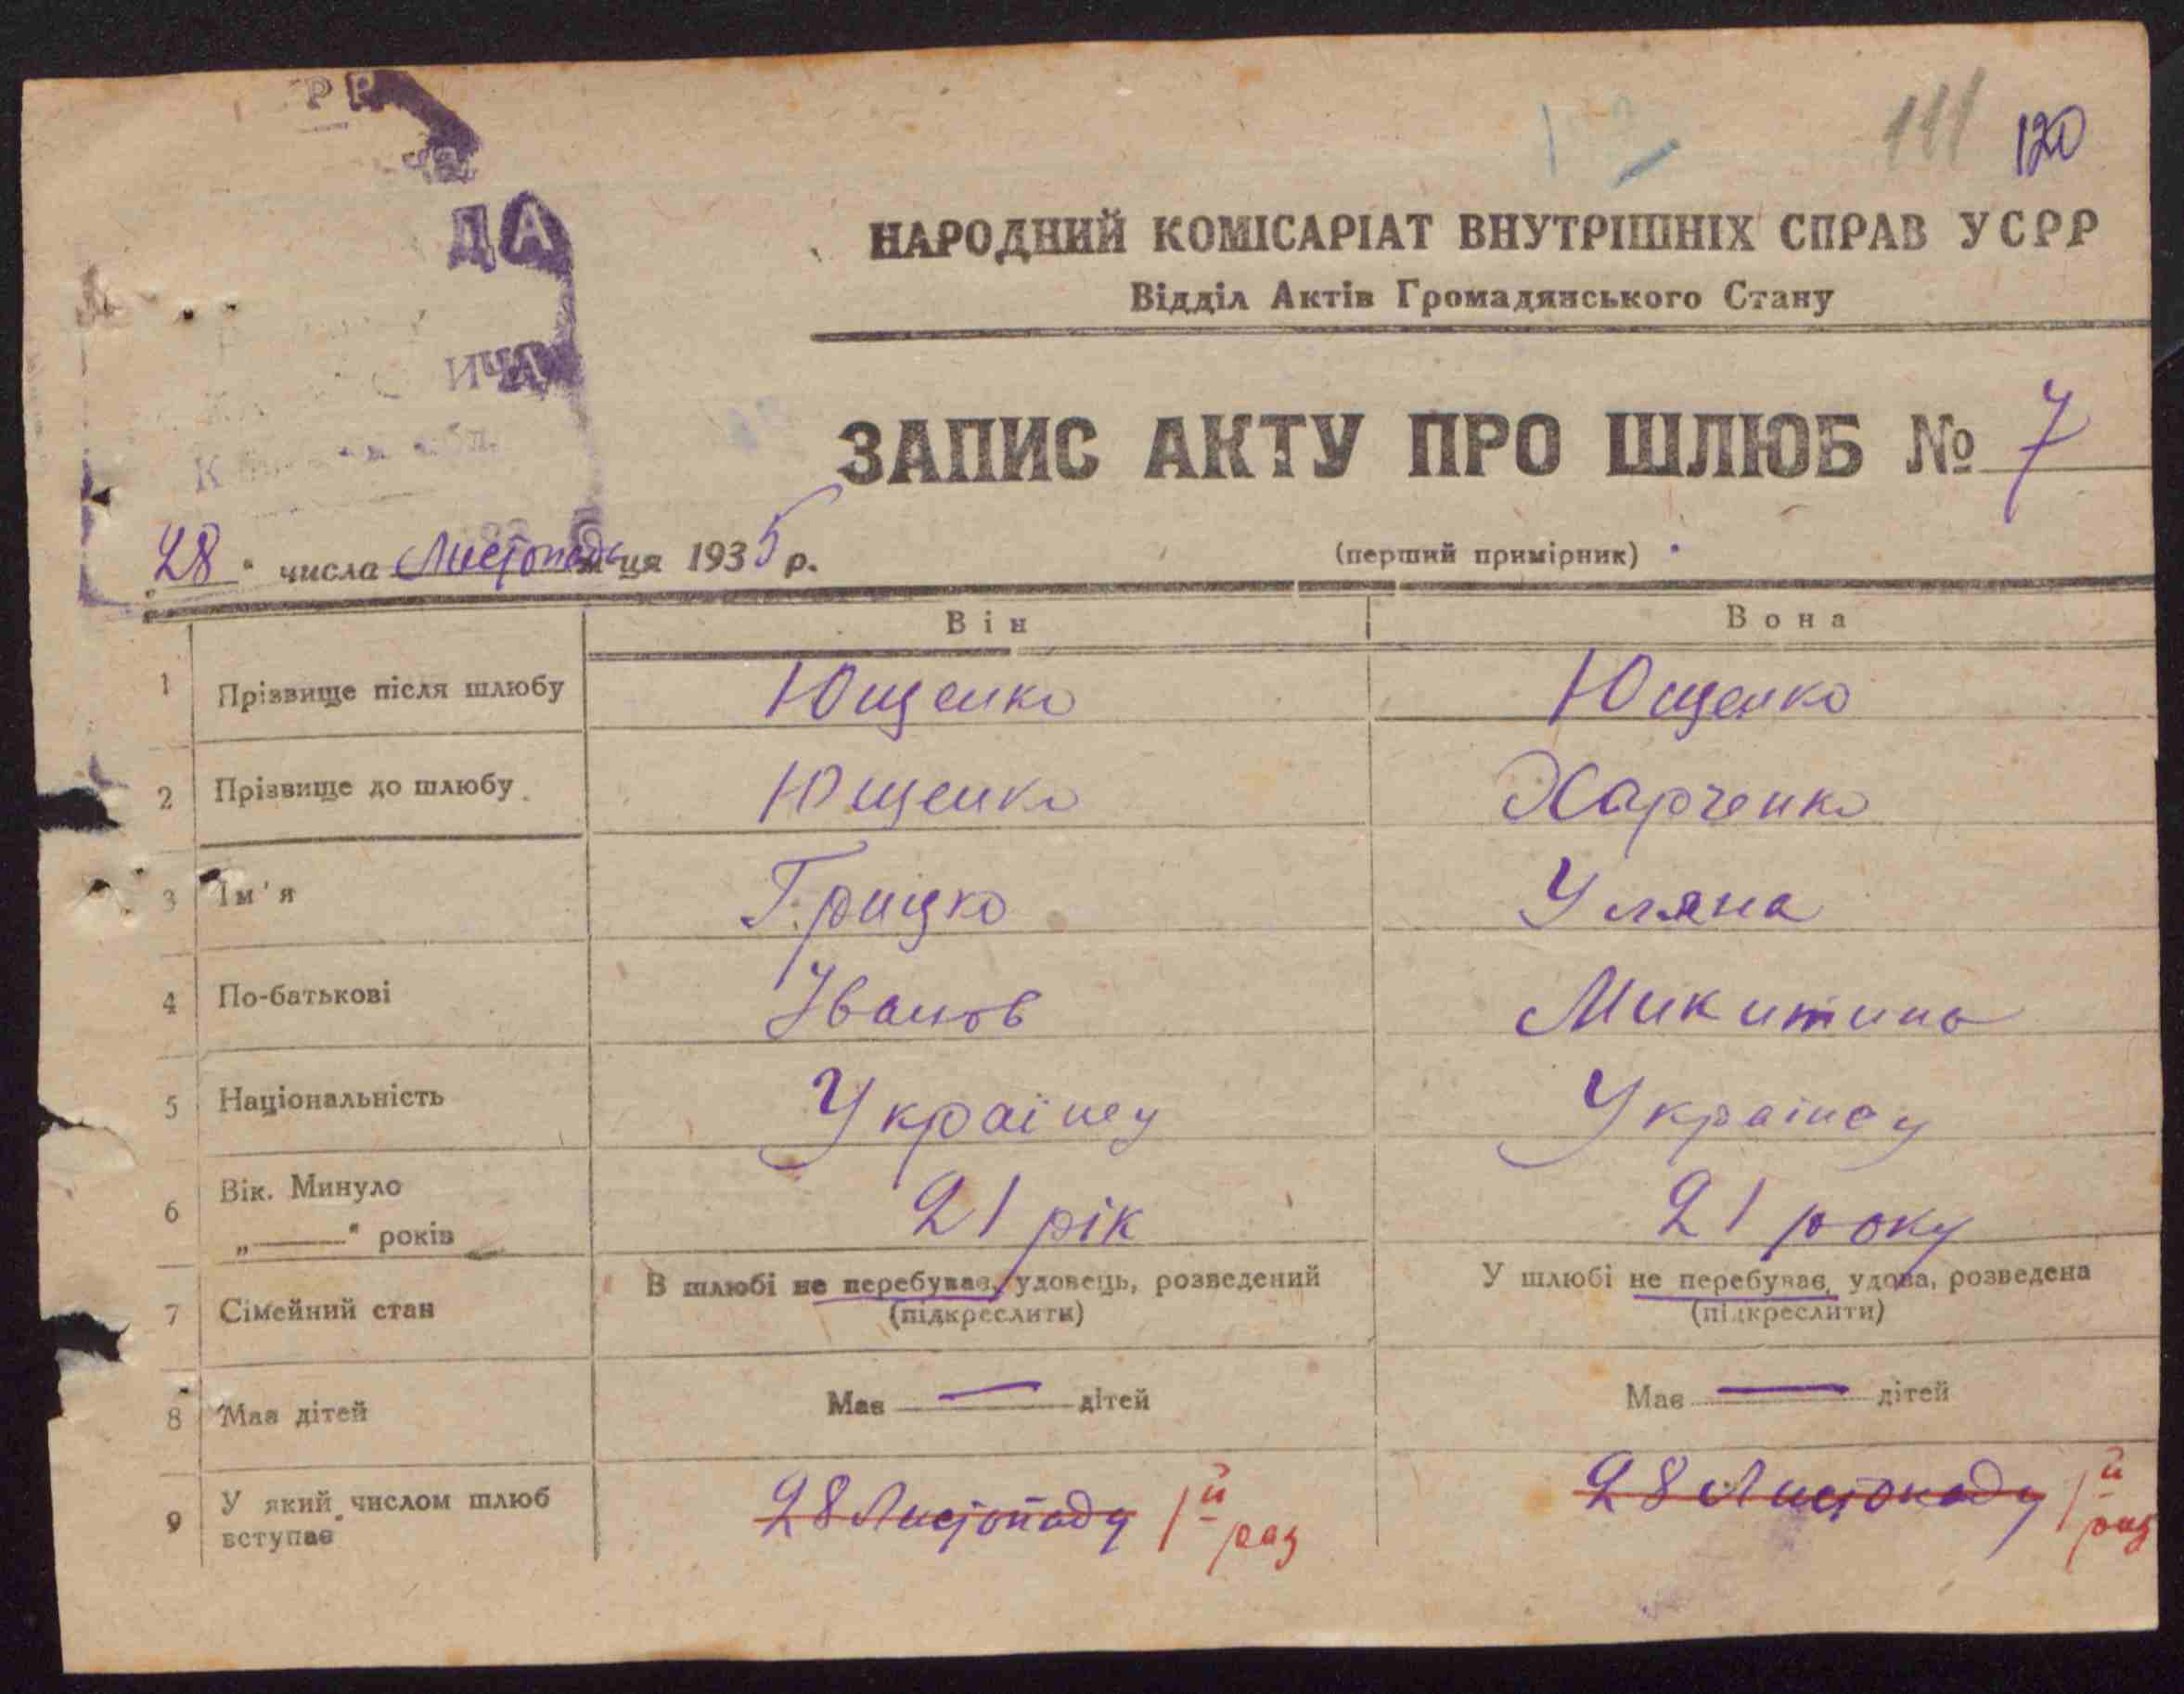 РР
111 120
ДА
НАРОДНИЙ КОМІСАРІАТ ВНУТРІШНІХ СПРАВ УСРР
Відділ Актів Громадянського Стану
ИЧА
ЗАПИС АКТУ ПРО ШЛЮБ № 7
„28“ числа Листопада м-ця 1935 р.
(перший примірник)
Він Вона
1 Прізвище після шлюбу Ющенко Ющенко
2 Прізвище до шлюбу Ющенко Харченко
3 Ім'я Грицко Уляна
4 По-батькові Іванов Микитина
5 Національність Українец Украінец
6 Вік. Минуло
„——“ років 21 рік 21 року
7 Сімейний стан В шлюбі не перебуває, удовець, розведений У шлюбі не перебуває, удова, розведена
(підкреслити) (підкреслити)
8 Має дітей Має — дітей Має — дітей
9 У який числом шлюб вступає 28 Листопаду 1й раз 28 Листопаду 1й раз